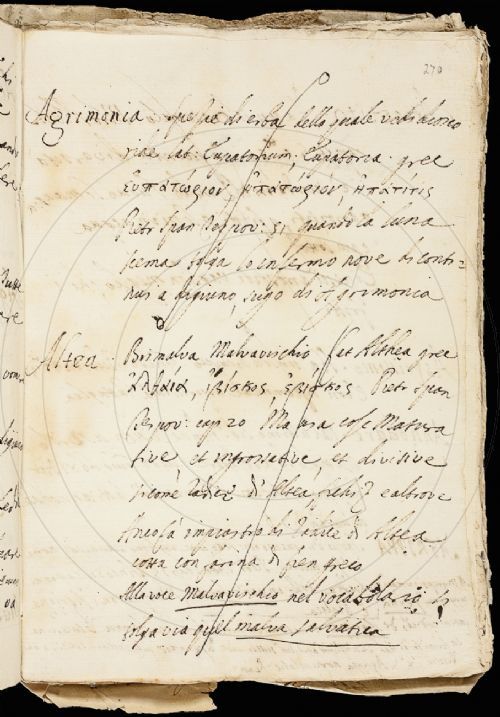 270
Agrimonia spezie di erba della quale vedi diosco
ride lat: Eupatorium, Eupatoria. grec
Ευπατώριον, ηπατώριον, ηπάτιτις
Pietr Span Respou: 51 quando la luna
scema toga lo enfermo nove di conti-
nui a digiuno, sugo di Agrimonia
Altea Bismalva Malvavischio Lat Althea grec
ἀλθαία, ἰβίσκος, ἐβίσκος Pietr Span
Respou: cap: 20 Ma usa cose Matura
tive et ingrossative, et divisive
sicome radice d'Altea, fichi et altrove
Ancora impiastro di radice d'Altea
cotta con farina di fien greco
Alla voce Malvavischio nel vocabolario si
tolga via quel malva salvatica